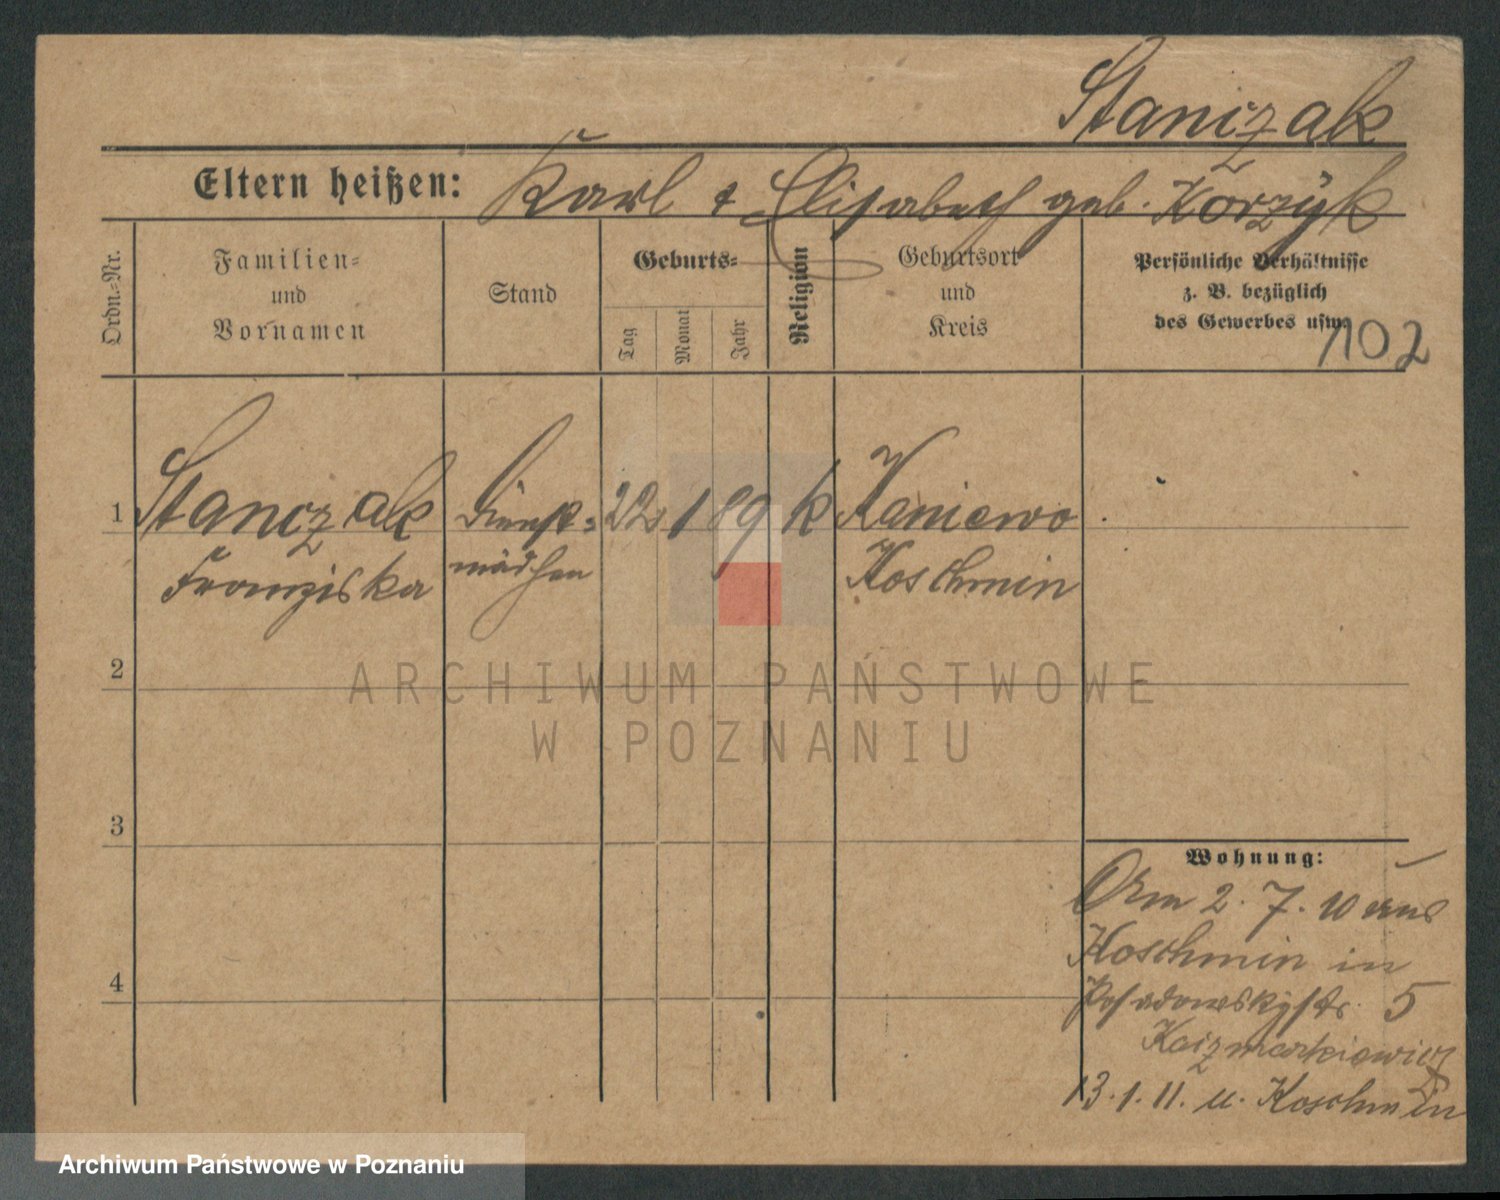 Stanczak
Eltern heißen: Karl & Elisabeth geb. Korzyk
Ordn.-Nr.
Familien-
und
Vornamen
Stand
Geburts-
Tag
Monat
Jahr
Religion
Geburtsort
und
Kreis
Persönliche Verhältnisse
z. B. bezüglich
des Gewerbes usw.
102
1 Stanczak Dienst- 22 1 89 k Kaniewo
Franziska mädchen Koschmin
2
3
4
Wohnung:
2. 7. 10 aus
Koschmin in
Posadowskystr. 5
Kaczmarkiewicz
13.1.11. n. Koschmin
ARCHIWUM PAŃSTWOWE
W POZNANIU
Archiwum Państwowe w Poznaniu